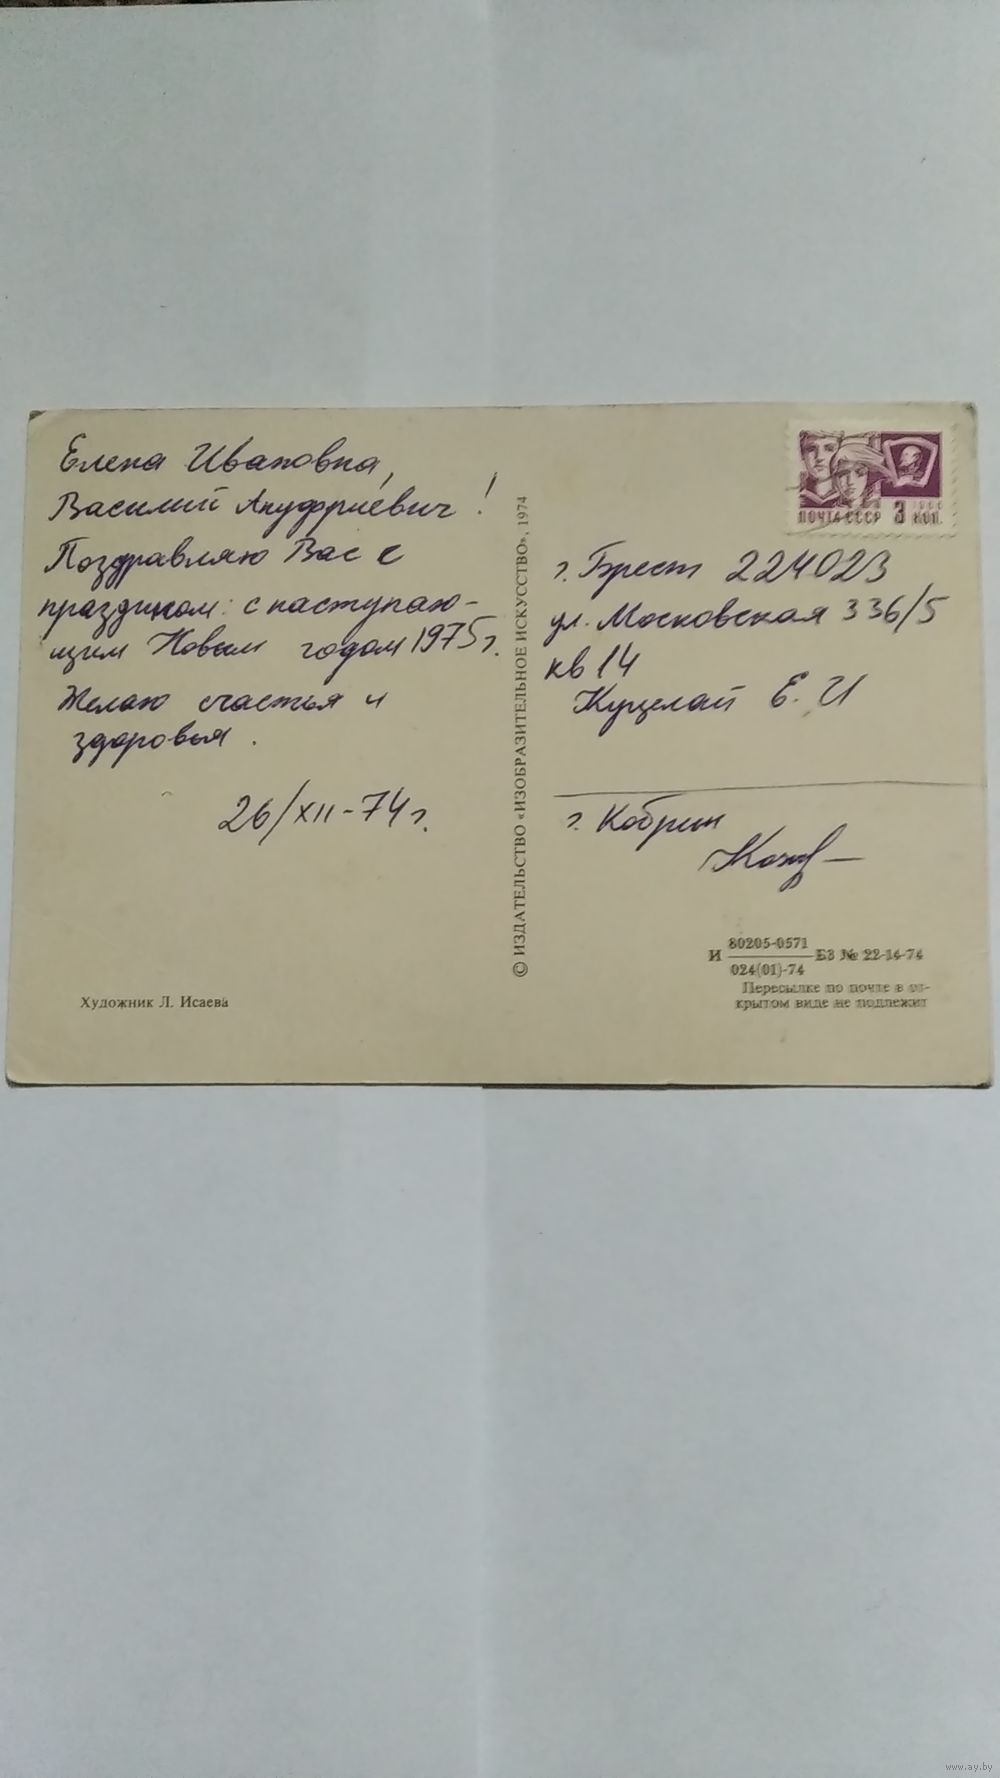 Елена Ивановна,
Василий Ануфриевич!
Поздравляю Вас с
праздником: с наступаю-
щим Новым годом 1975 г.
Желаю счастья и
здоровья.
26/XII-74 г.
Художник Л. Исаева
© ИЗДАТЕЛЬСТВО «ИЗОБРАЗИТЕЛЬНОЕ ИСКУССТВО», 1974
ПОЧТА СССР 3 КОП.
г. Брест 224023
ул. Московская 336/5
кв 14
Куцелай Е. И
г. Кобрин
И 80205-0571 БЗ № 22-14-74
024(01)-74
Пересылке по почте в от-
крытом виде не подлежит
www.ay.by